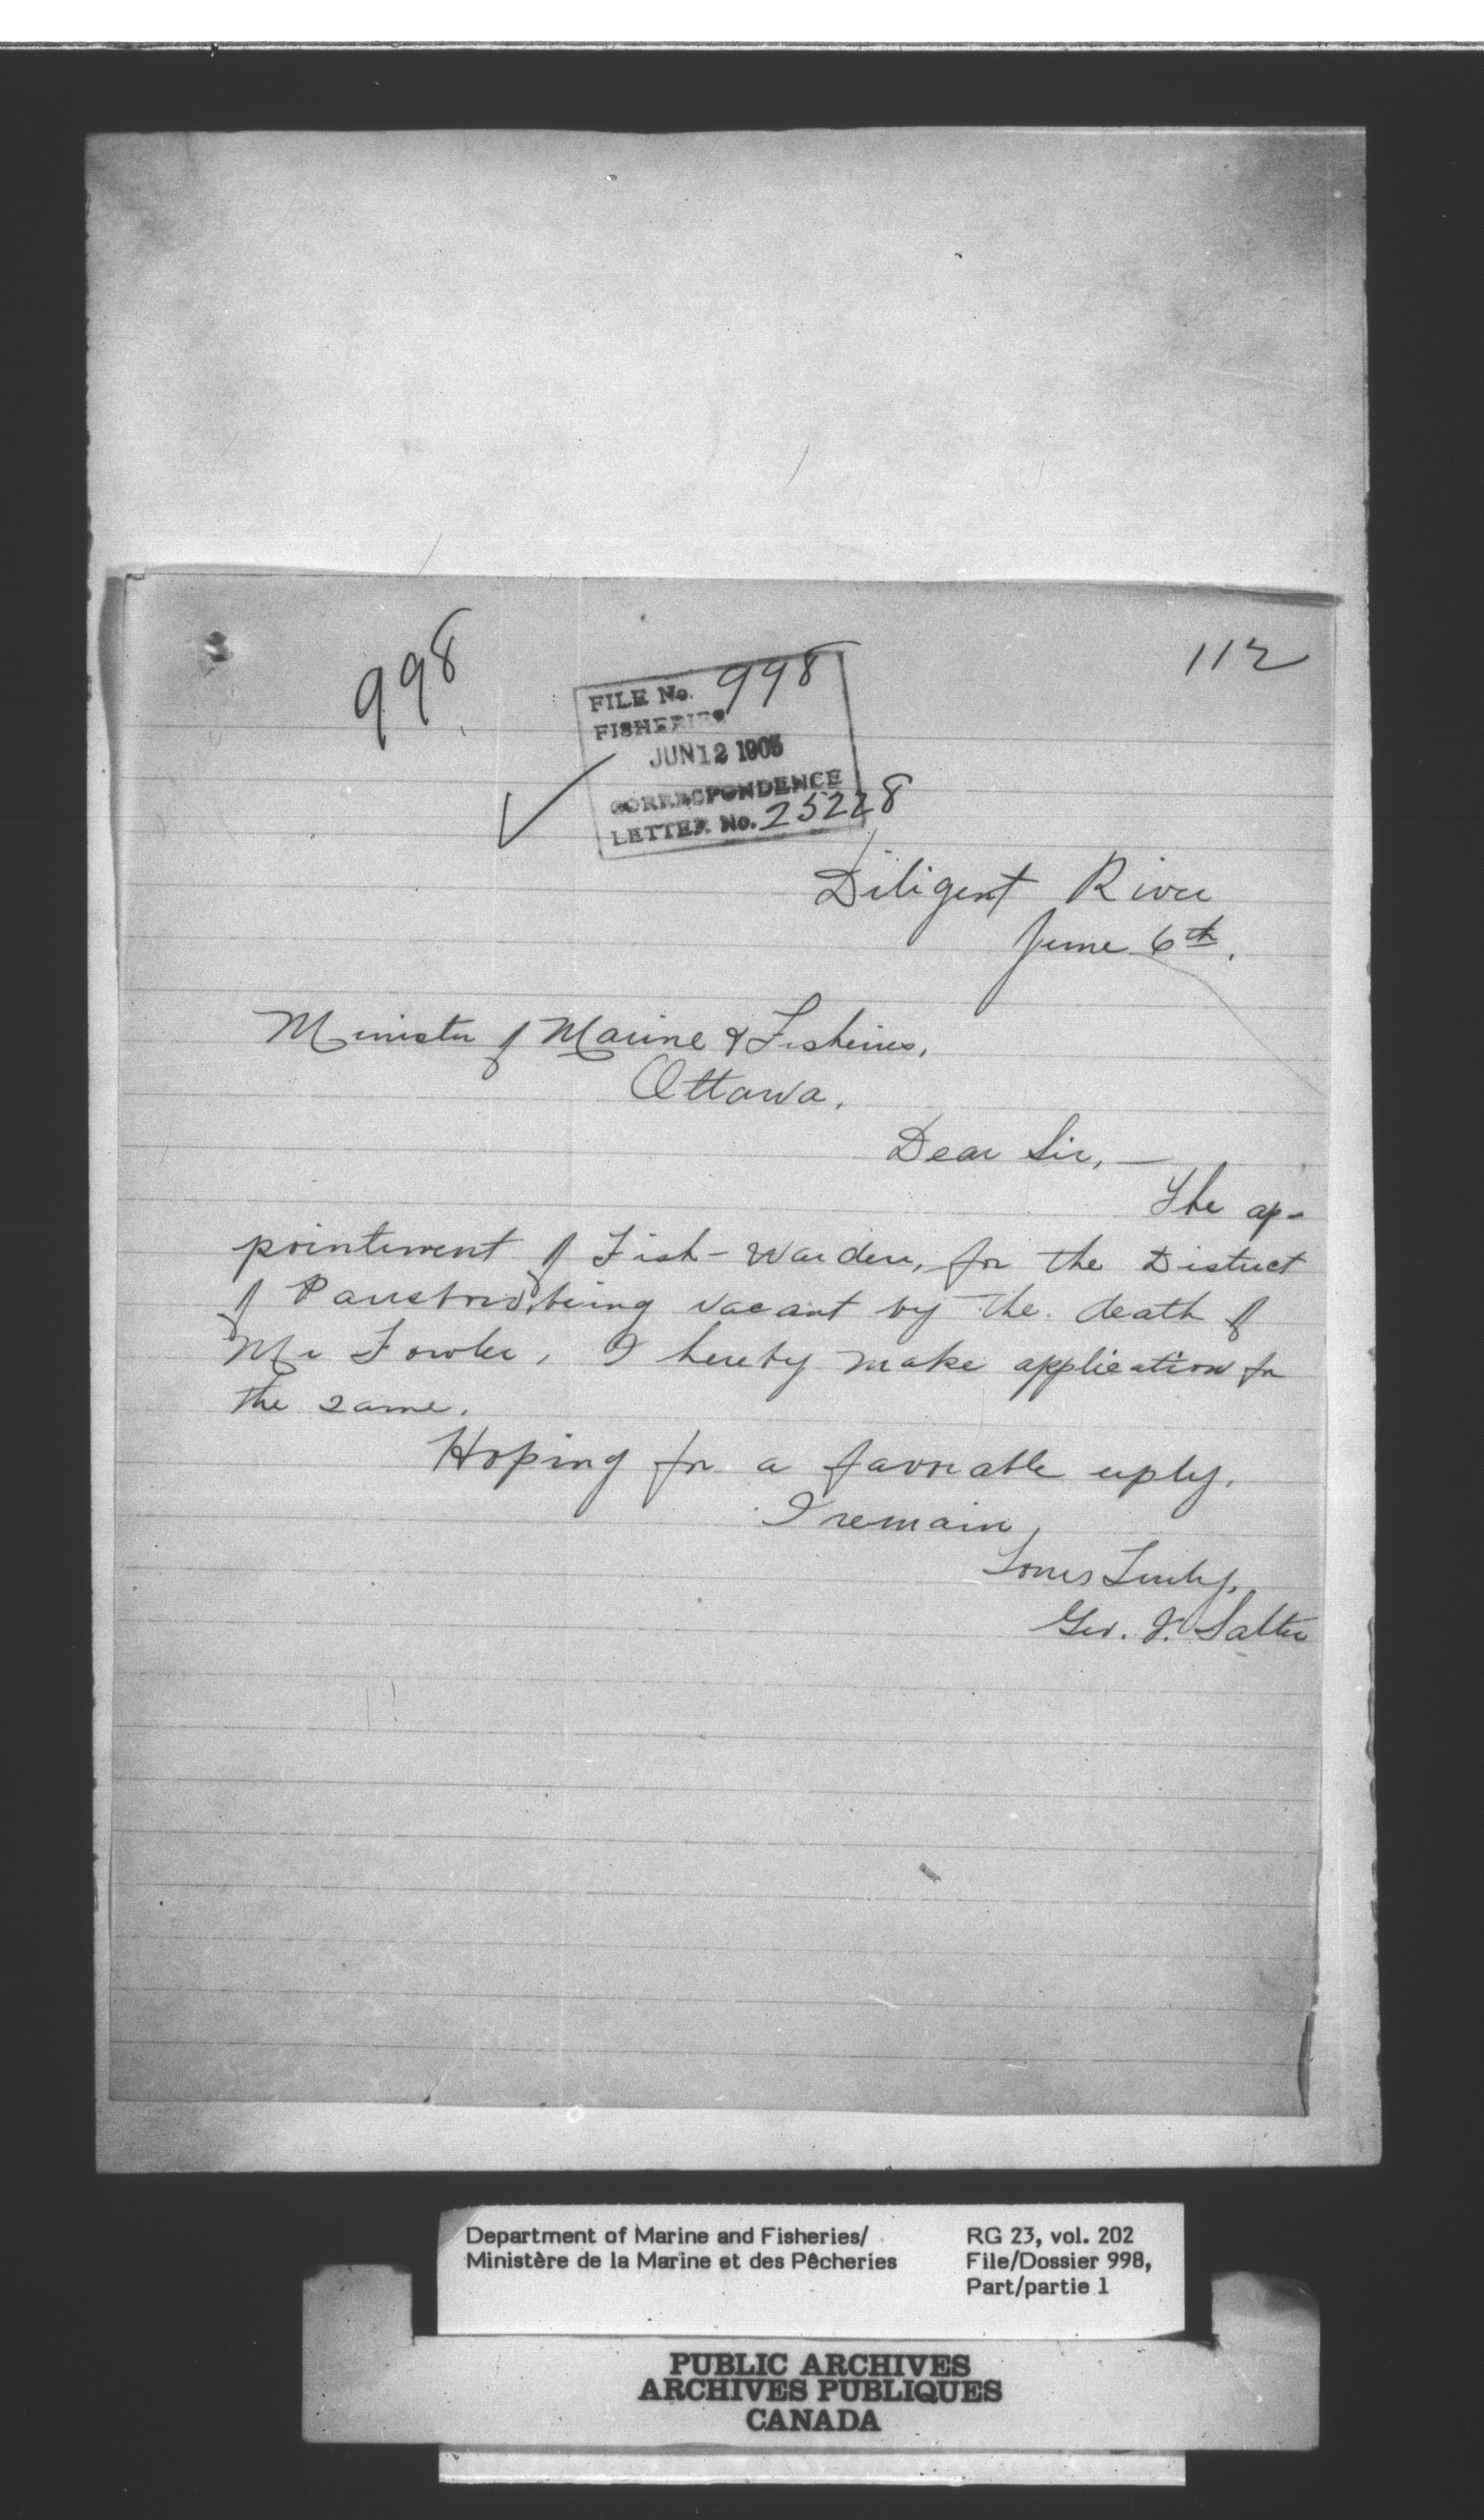 998
112
FILE No. 998
FISHERIES
JUN 12 1905
CORRESPONDENCE
LETTER No. 25228
Diligent River
June 6th.
Minister of Marine & Fisheries,
Ottawa.
Dear Sir, —
The ap-
pointment of Fish-Warden, for the District
of Parrsboro, being vacant by the death of
Mr Fowler, I hereby make application for
the same.
Hoping for a favorable reply.
I remain,
Yours Truly,
Geo. J. Salter
Department of Marine and Fisheries/
Ministère de la Marine et des Pêcheries
RG 23, vol. 202
File/Dossier 998,
Part/partie 1
PUBLIC ARCHIVES
ARCHIVES PUBLIQUES
CANADA